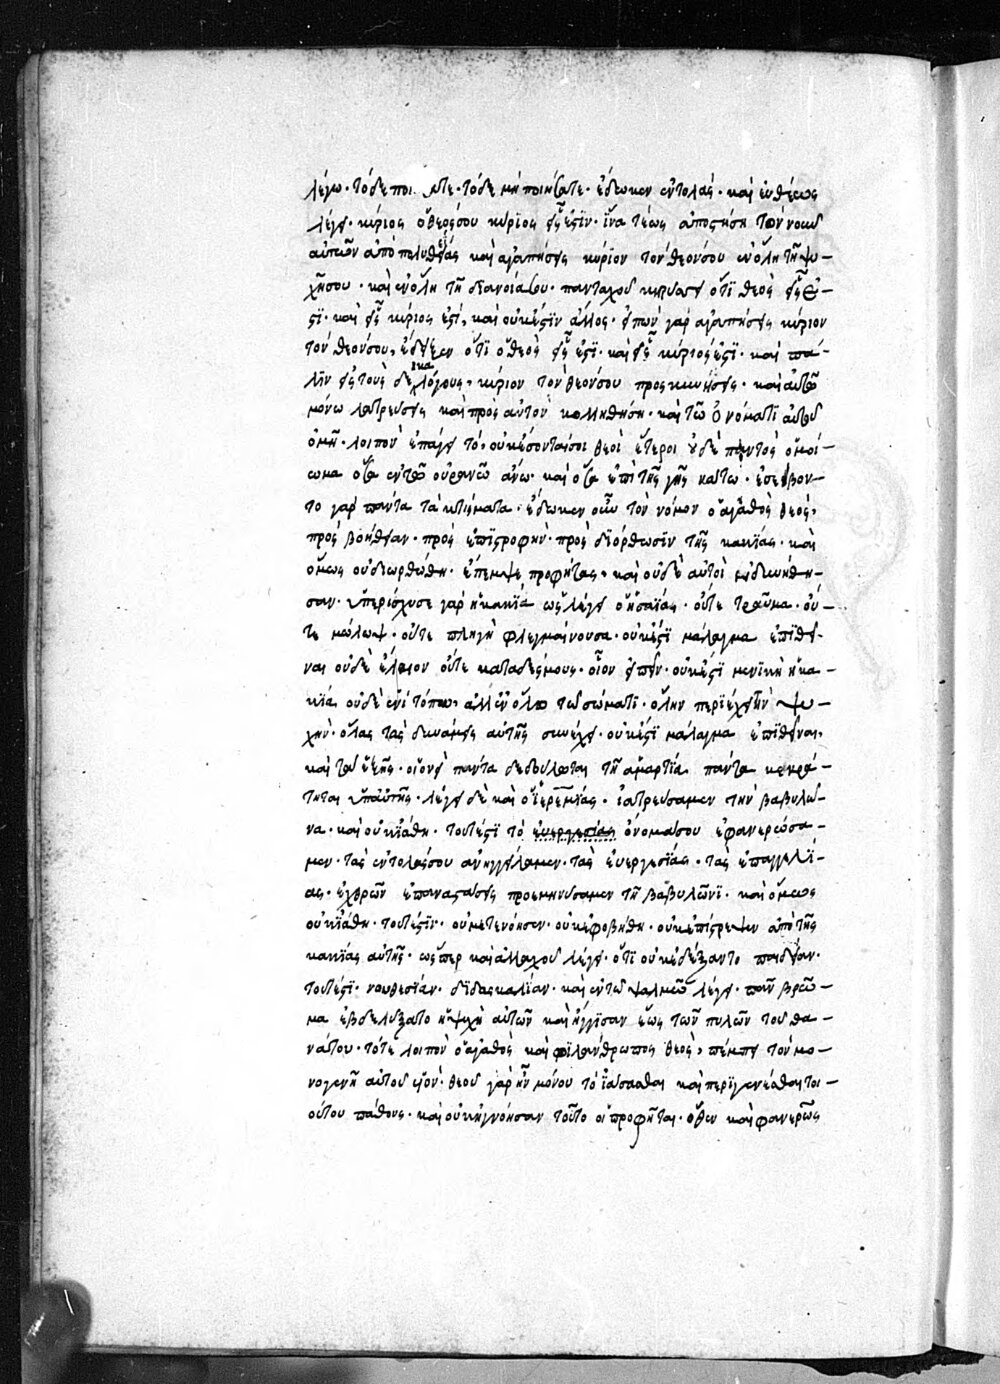 λέγω· τόδε ποι τε· τόδε μὴ ποιήσατε· ἔδωκεν ἐντολάς· καὶ εὐθέως
λέγει· κύριος ὁ θεός σου κύριος εἷς ἐστὶν· ἵνα τέως ἀποστήση τὸν νοῦν
αὐτῶν ἀπὸ πολυθεΐας καὶ ἀγαπήσεις κύριον τὸν θεόν σου ἐν ὅλη τῆ ψυ–
χῆ σου· καὶ ἐν ὅλη τῆ διανοία σου· πανταχοῦ κηρύσσει ὅτι θεὸς εἷς ἐ–
στι· καὶ εἷς κύριος ἐστί, καὶ οὐκ ἔστιν ἄλλος· εἰπὼν γὰρ ἀγαπήσεις κύριον
τὸν θεόν σου, ἔδειξεν ὅτι ὁ θεὸς εἷς ἐστι· καὶ εἷς κύριός ἐστι· καὶ πά–
λιν εἰς τοὺς δεκαλόγους, κύριον τὸν θεόν σου προσκυνήσεις· καὶ αὐτῶ
μόνω λατρεύσεις καὶ πρὸς αὐτὸν κολληθήση· καὶ τῶ ὀνόματι αὐτοῦ
ὀμῆ· λοιπὸν ἐπάγει τό, οὐκ ἔσονταί σοι θεοὶ ἕτεροι οὐδὲ παντὸς ὁμοί–
ωμα ὅσα ἐν τῶ οὐρανῶ ἄνω· καὶ ὅσα ἐπὶ τῆς γῆς κάτω· ἐσέβον–
το γὰρ πάντα τὰ κτίσματα· ἔδωκεν οὖν τὸν νόμον ὁ ἀγαθὸς θεός,
πρὸς βοήθειαν· πρὸς ἐπιστροφήν· πρὸς διόρθωσιν τῆς κακίας· καὶ
ὅμως οὐ διωρθώθη· ἔπεμψε προφήτας, καὶ οὐδὲ αὐτοὶ ἠδυνήθη–
σαν· ὑπερίσχυσε γὰρ ἡ κακία ὡς λέγει ὁ ἡσαΐας· οὔτε τραῦμα· οὔ–
τε μώλωψ· οὔτε πληγὴ φλεγμαίνουσα· οὐκ ἔστι μάλαγμα ἐπιθεῖ–
ναι οὐδὲ ἔλαιον οὔτε καταδέσμους· οἷον εἰπεῖν· οὐκ ἔστι μενικὴ ἡ κα–
κία οὐδὲ ἑνὶ τόπω, ἀλλ' ἐν ὅλω τῶ σώματι· ὅλην περιέχει τὴν ψυ–
χήν· ὅλας τὰς δυνάμεις αὐτῆς συνέχει· οὐκ ἔστι μάλαγμα ἐπιθεῖναι,
καὶ τὰ ἑξῆς· οἱονεὶ πάντα δεδούλωται τῆ ἁμαρτία πάντα κεκρά–
τηται ὑπ' αὐτῆς· λέγει δὲ καὶ ὁ ἱερεμίας· ἰατρεύσαμεν τὴν βαβυλῶ–
να· καὶ οὐκ ἰάθη· τουτέστι τὸ εὐεργεσίας ὄνομά σου ἐφανερώσα–
μεν· τὰς ἐντολάς σου ἀνηγγείλαμεν· τὰς εὐεργεσίας· τὰς ἐπαγγελί–
ας· ἐχθρῶν ἐπαναστάσεις προεμηνύσαμεν τῆ βαβυλῶνι· καὶ ὅμως
οὐκ ἰάθη· τουτέστιν· οὐ μετενόησεν· οὐκ ἐφοβήθη· οὐκ ἐπέστρεψεν ἀπὸ τῆς
κακίας αὐτῆς· ὥσπερ καὶ ἀλλαχοῦ λέγει· ὅτι οὐκ ἐδέξαντο παιδείαν·
τουτέστι· νουθεσίαν· διδασκαλίαν· καὶ ἐν τῶ ψαλμῶ λέγει· πᾶν βρῶ–
μα ἐβδελύξατο ἡ ψυχὴ αὐτῶν καὶ ἤγγισαν ἕως τῶν πυλῶν τοῦ θα–
νάτου· τότε λοιπὸν ὁ ἀγαθὸς καὶ φιλάνθρωπος θεὸς, πέμπει τὸν μο–
νογενῆ αὐτοῦ υἱόν· θεοῦ γὰρ ἦν μόνου τὸ ἰάσασθαι καὶ περιγενέσθαι τοι–
ούτου πάθους· καὶ οὐκ ἠγνόησαν τοῦτο οἱ προφῆται· ὅθεν καὶ φανερῶς